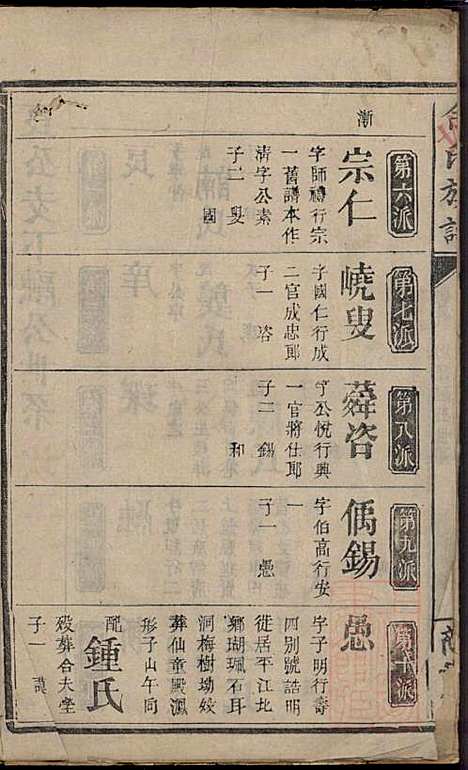 第六派
宗仁
漸
字師禮行宗
一舊譜本作
清字公素
子二 叟
國
第七派
嶢叟
字國仁行成
二官成忠郎
子一 咨
第八派
蕣咨
字公悅行興
一官將仕郎
子二 錫
和
第九派
偊錫
字伯高行安
子一 愚
第十派
愚
字子明行壽
四別號誥明
徙居平江北
鄉瑚珮石耳
洞梅樹坳㚫
葬仙童殿㵢
形子山午向
配
鍾氏
歿葬合夫塋
子一